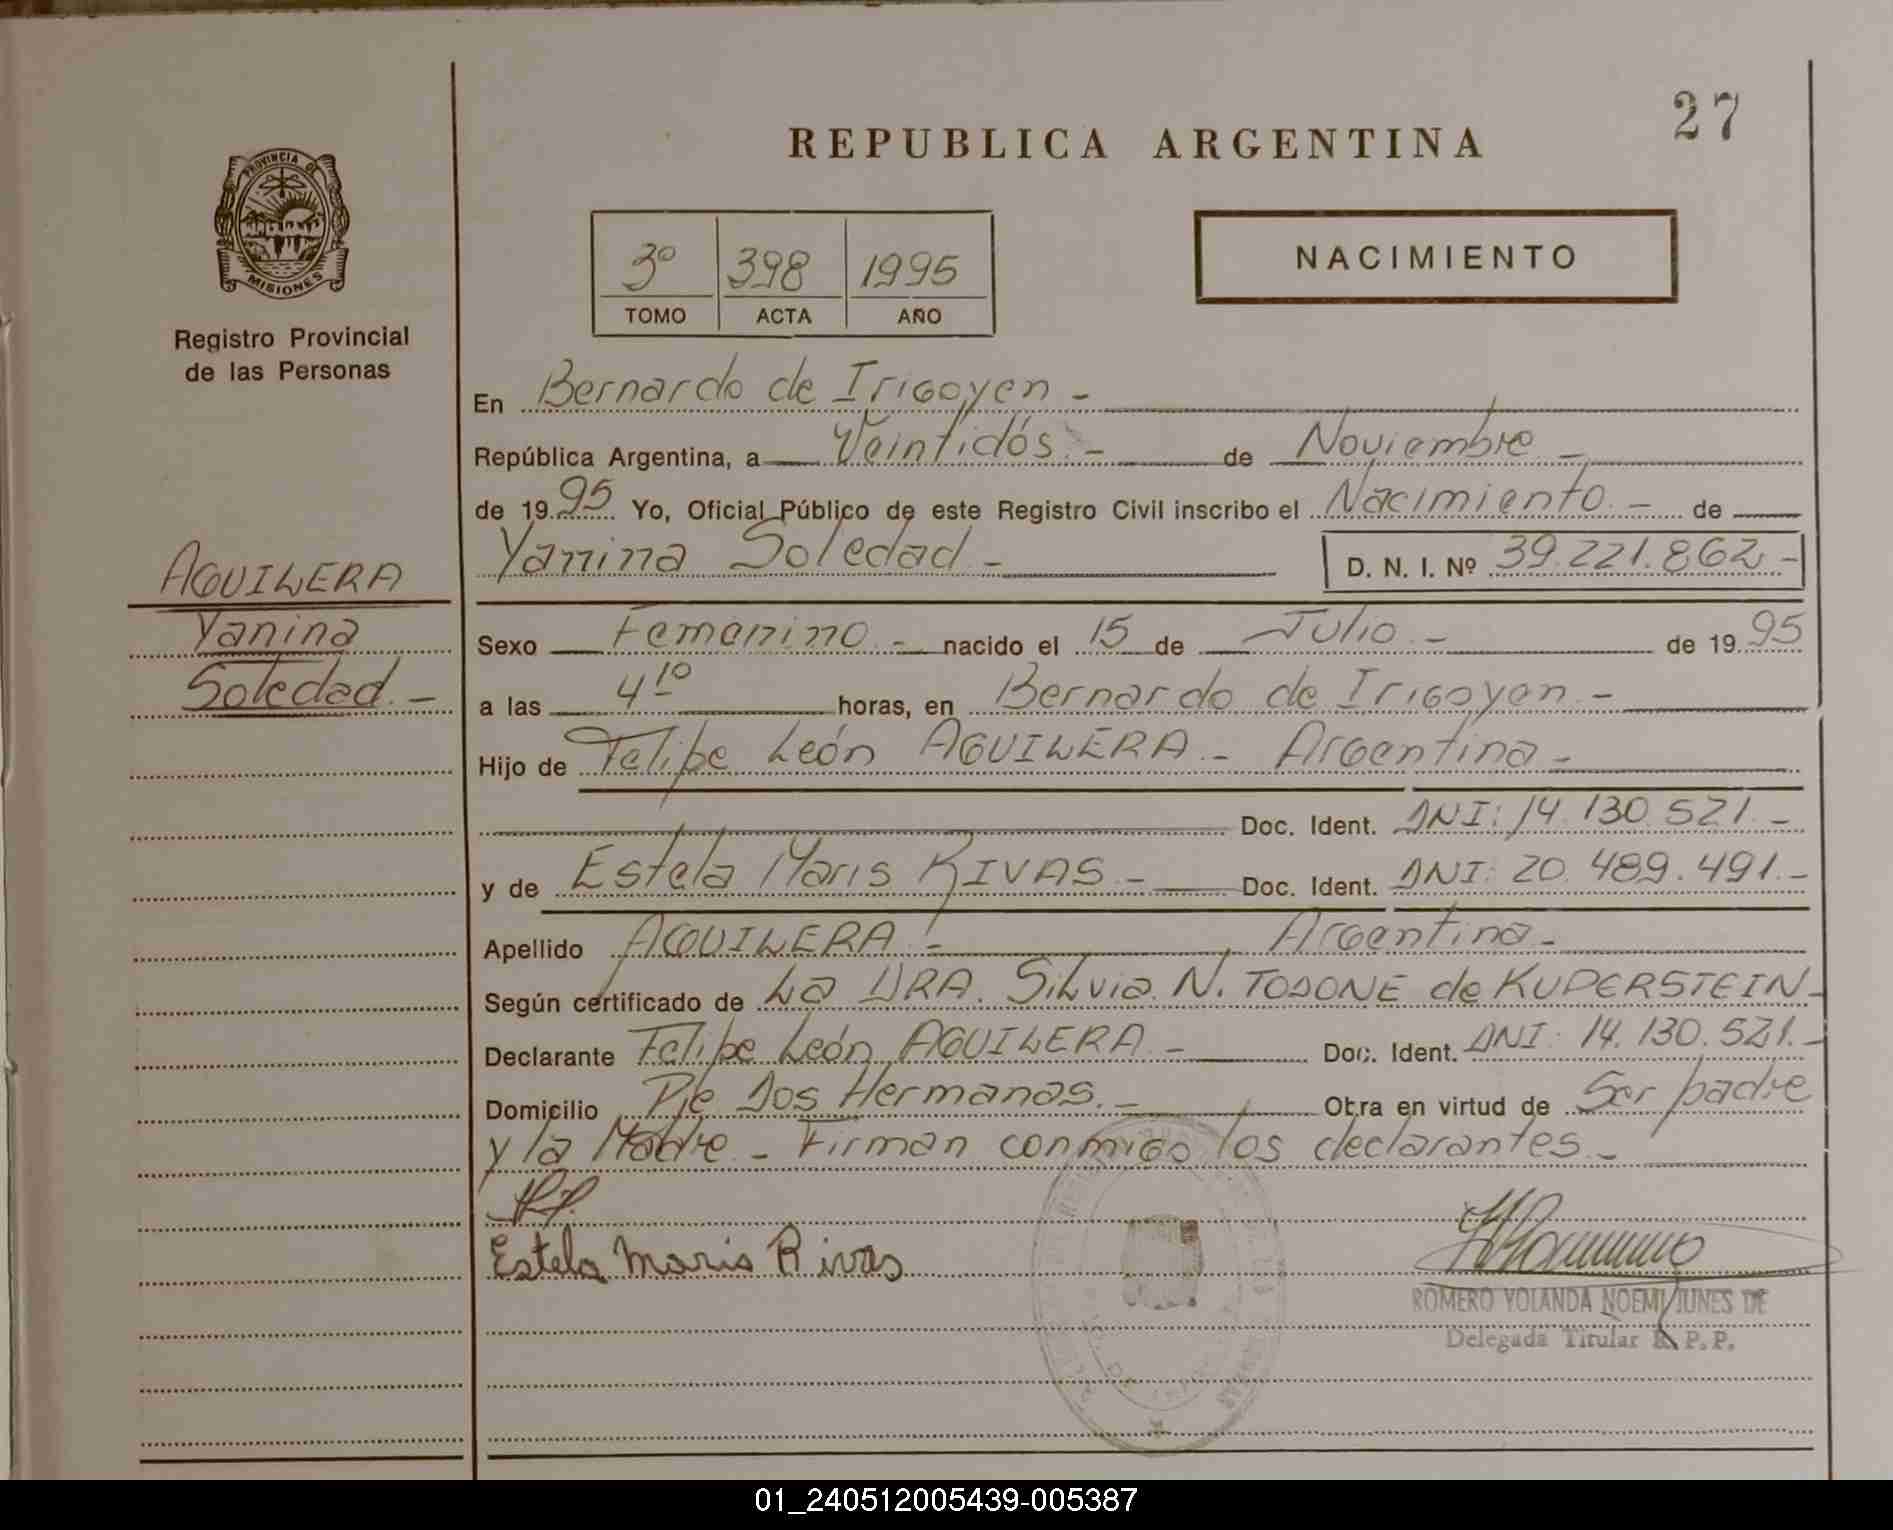 27
REPUBLICA ARGENTINA
PROVINCIA DE
MISIONES
Registro Provincial
de las Personas
3º 398 1995
TOMO ACTA AÑO
NACIMIENTO
En Bernardo de Irigoyen -
República Argentina, a Veintidós - de Noviembre -
de 1995 Yo, Oficial Público de este Registro Civil inscribo el Nacimiento - de
Yanina Soledad - D. N. I. Nº 39.221.862 -
AGUILERA
Yanina
Soledad. -
Sexo Femenino - nacido el 15 de Julio - de 1995
a las 4 10 horas, en Bernardo de Irigoyen -
Hijo de Felipe León AGUILERA - Argentina -
Doc. Ident. DNI: 14.130.521. -
y de Estela Maris RIVAS - Doc. Ident. DNI: 20.489.491. -
Apellido AGUILERA - Argentina -
Según certificado de La DRA. Silvia N. TODONE de KUPERSTEIN -
Declarante Felipe León AGUILERA - Doc. Ident. DNI: 14.130.521. -
Domicilio Pje Dos Hermanas. - Obra en virtud de Ser padre
y la Madre - Firman conmigo los declarantes -
Estela Maris Rivas
ROMERO YOLANDA NOEMI JUNES DE
Delegada Titular R. P. P.
01_240512005439-005387